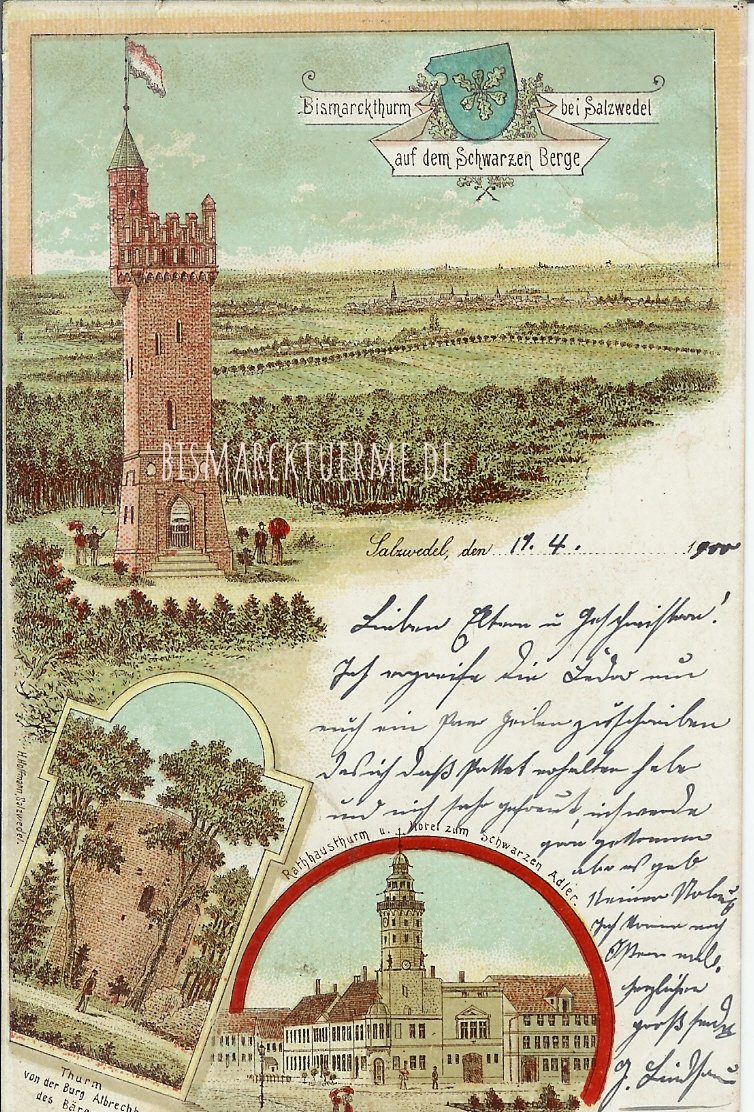 Bismarckthurm bei Salzwedel
auf dem Schwarzen Berge
BISMARCKTUERME.DE
Salzwedel, den 17. 4. 1900
Lieben Eltern u Geschwistern!
Ich ergreife die Feder um
euch ein Paar Zeilen zuschreiben
das ich daß Packet erhalten habe
und mich sehr gefreut, ich werde
gern gekommen
aber es gab
keinen Urlaub
Ich komme
herzlichen
H. Hoffmann, Salzwedel.
Rathhausthurm u. Hotel zum Schwarzen Adler.
Thurm
von der Burg Albrecht
des Bär